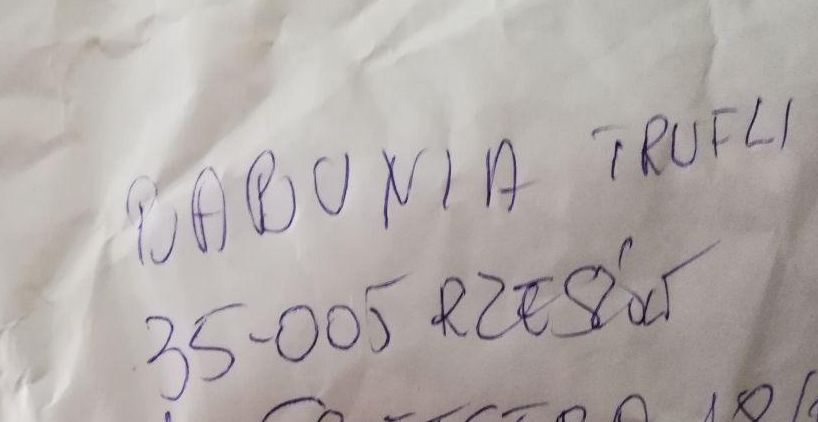 BABUNIA TRUFLI
35-005 RZESZÓW
18/